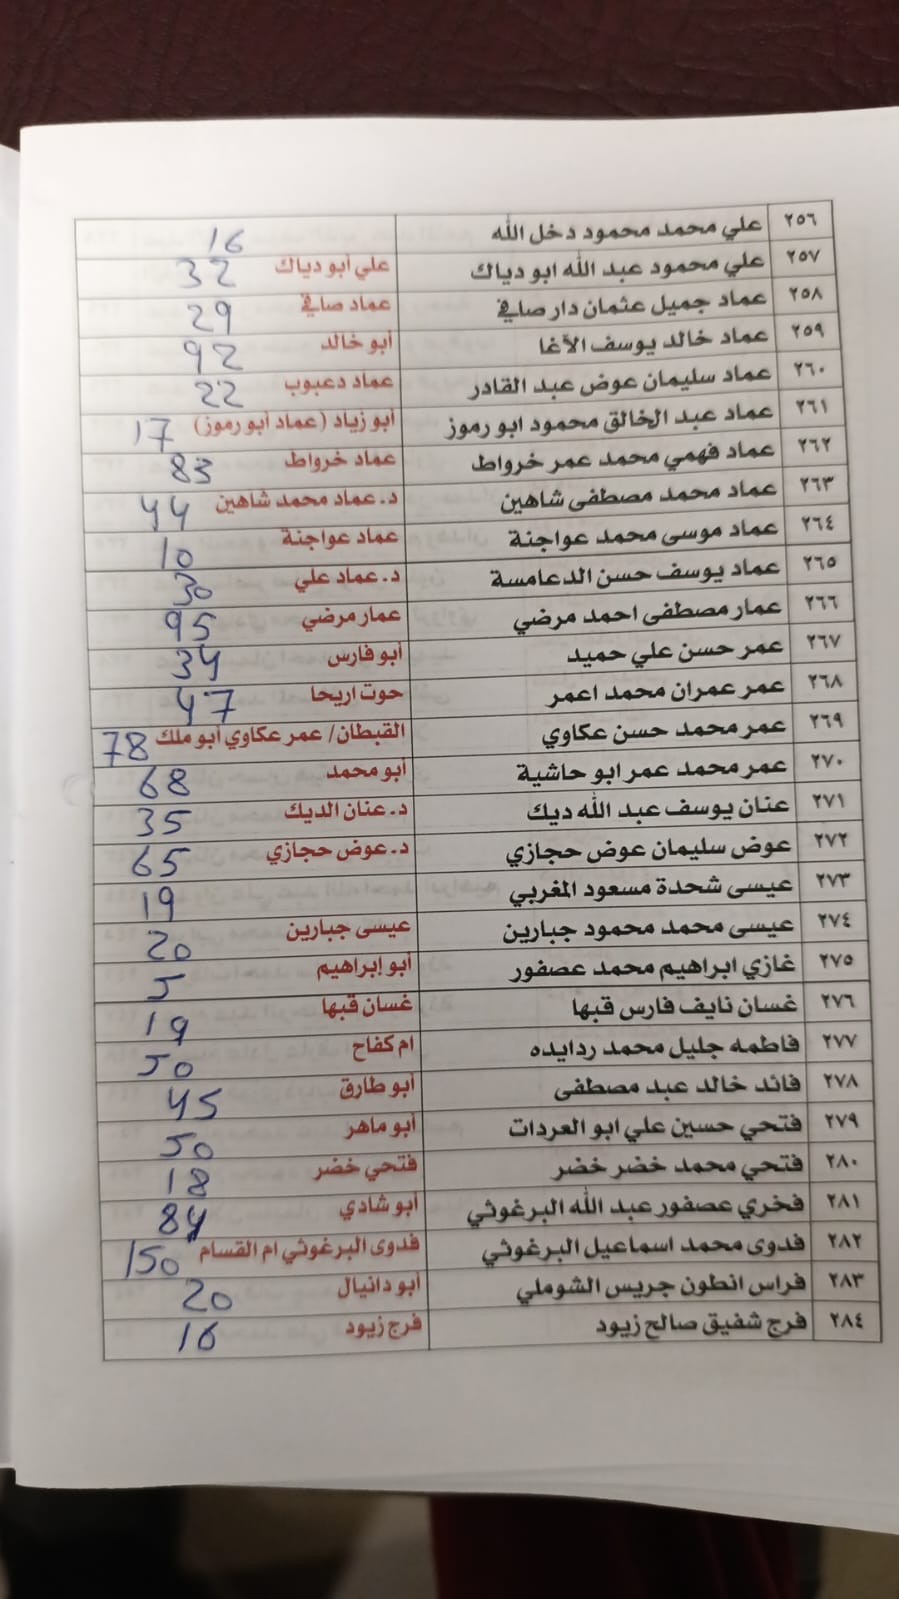 ٢٥٦ علي محمد محمود دخل الله 16
٢٥٧ علي محمود عبد الله ابو دياك علي أبو دياك 32
٢٥٨ عماد جميل عثمان دار صافي عماد صافي 29
٢٥٩ عماد خالد يوسف الآغا أبو خالد 92
٢٦٠ عماد سليمان عوض عبد القادر عماد دعبوب 22
٢٦١ عماد عبد الخالق محمود ابو رموز أبو زياد (عماد أبو رموز) 17
٢٦٢ عماد فهمي محمد عمر خرواط عماد خرواط 83
٢٦٣ عماد محمد مصطفى شاهين د. عماد محمد شاهين 44
٢٦٤ عماد موسى محمد عواجنة عماد عواجنة 10
٢٦٥ عماد يوسف حسن الدعامسة د. عماد علي 30
٢٦٦ عمار مصطفى احمد مرضي عمار مرضي 95
٢٦٧ عمر حسن علي حميد أبو فارس 34
٢٦٨ عمر عمران محمد اعمر حوت اريحا 47
٢٦٩ عمر محمد حسن عكاوي القبطان/ عمر عكاوي أبو ملك 78
٢٧٠ عمر محمد عمر ابو حاشية أبو محمد 68
٢٧١ عنان يوسف عبد الله ديك د. عنان الديك 35
٢٧٢ عوض سليمان عوض حجازي د. عوض حجازي 65
٢٧٣ عيسى شحدة مسعود المغربي 19
٢٧٤ عيسى محمد محمود جبارين عيسى جبارين 20
٢٧٥ غازي ابراهيم محمد عصفور أبو إبراهيم 5
٢٧٦ غسان نايف فارس قبها غسان قبها 19
٢٧٧ فاطمه جليل محمد ردايده ام كفاح 50
٢٧٨ فائد خالد عبد مصطفى أبو طارق 45
٢٧٩ فتحي حسين علي ابو العردات أبو ماهر 50
٢٨٠ فتحي محمد خضر خضر فتحي خضر 18
٢٨١ فخري عصفور عبد الله البرغوثي أبو شادي 84
٢٨٢ فدوى محمد اسماعيل البرغوثي فدوى البرغوثي ام القسام 150
٢٨٣ فراس انطون جريس الشوملي أبو دانيال 20
٢٨٤ فرج شفيق صالح زيود فرج زيود 16